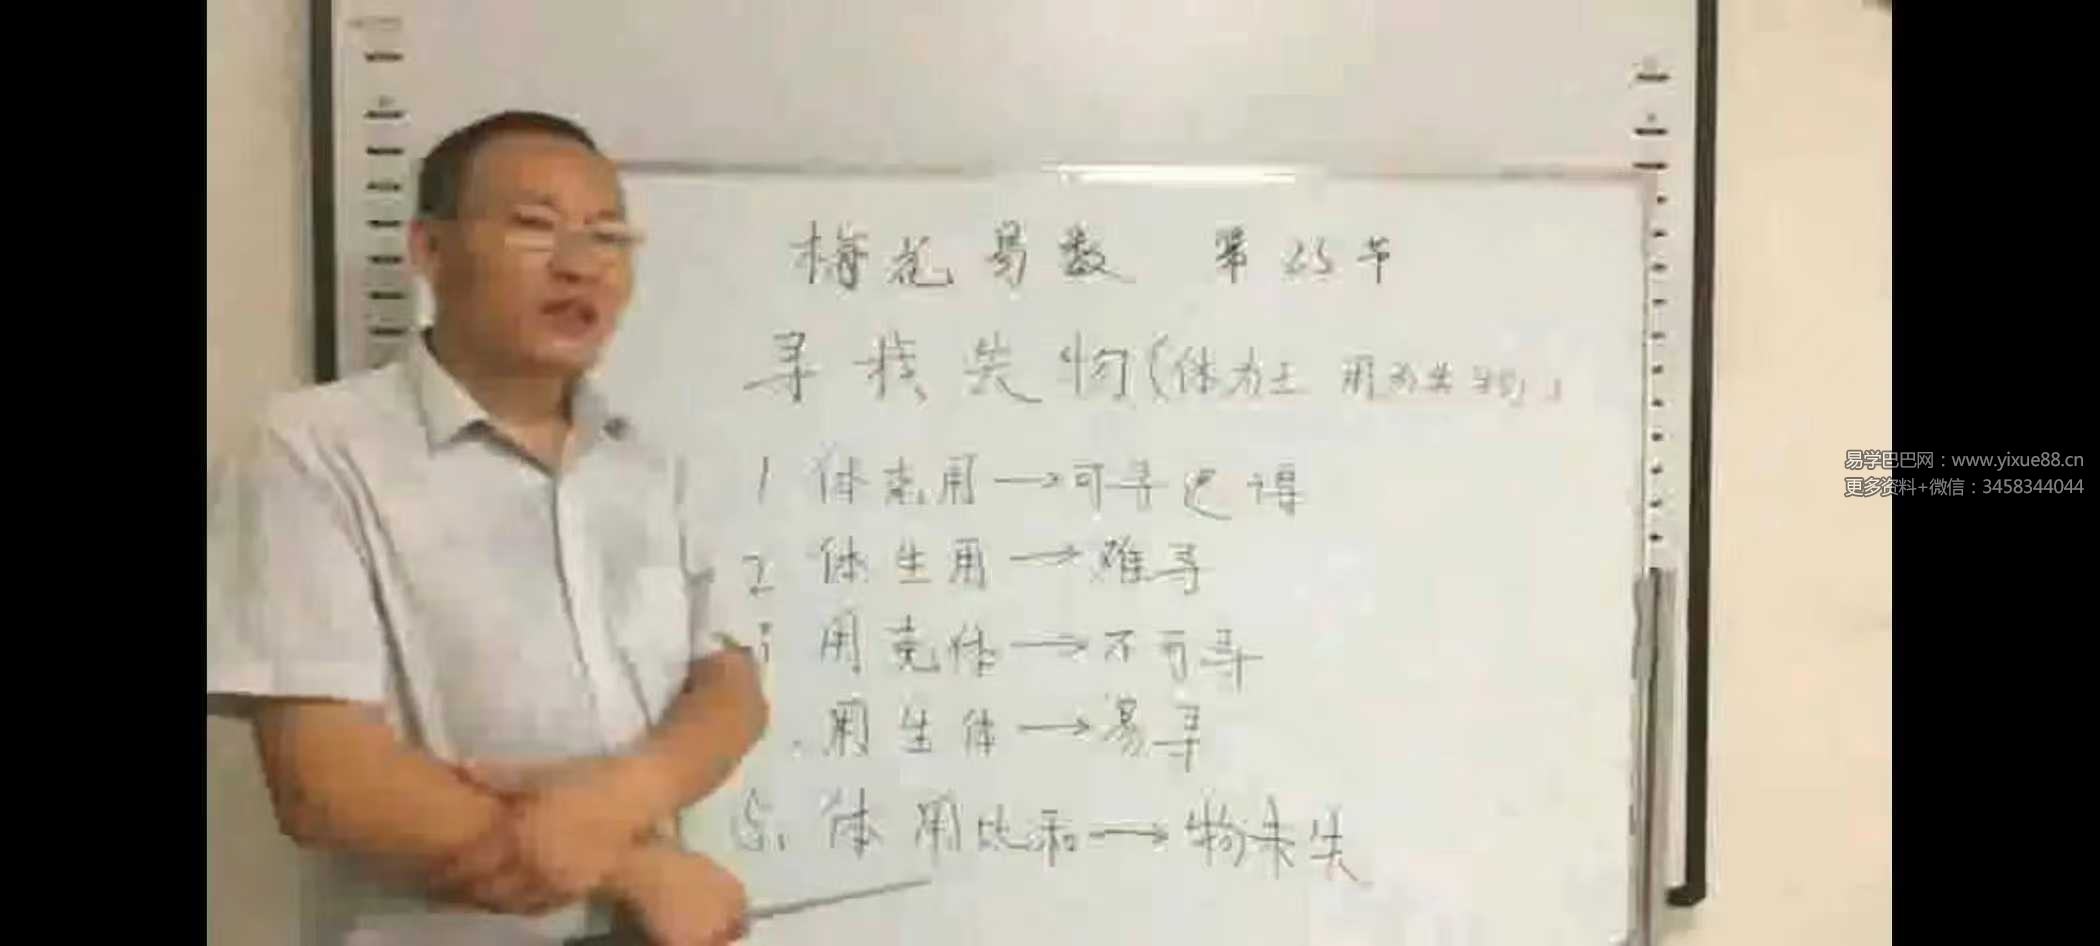 梅花易数 第25节
寻找失物(体为主 用为失物)
1 体克用→可寻迟得
2 体生用→难寻
用克体→不可寻
用生体→易寻
5. 体用比和→物未失
易学巴巴网：www.yixue88.cn
更多资料+微信：3458344044